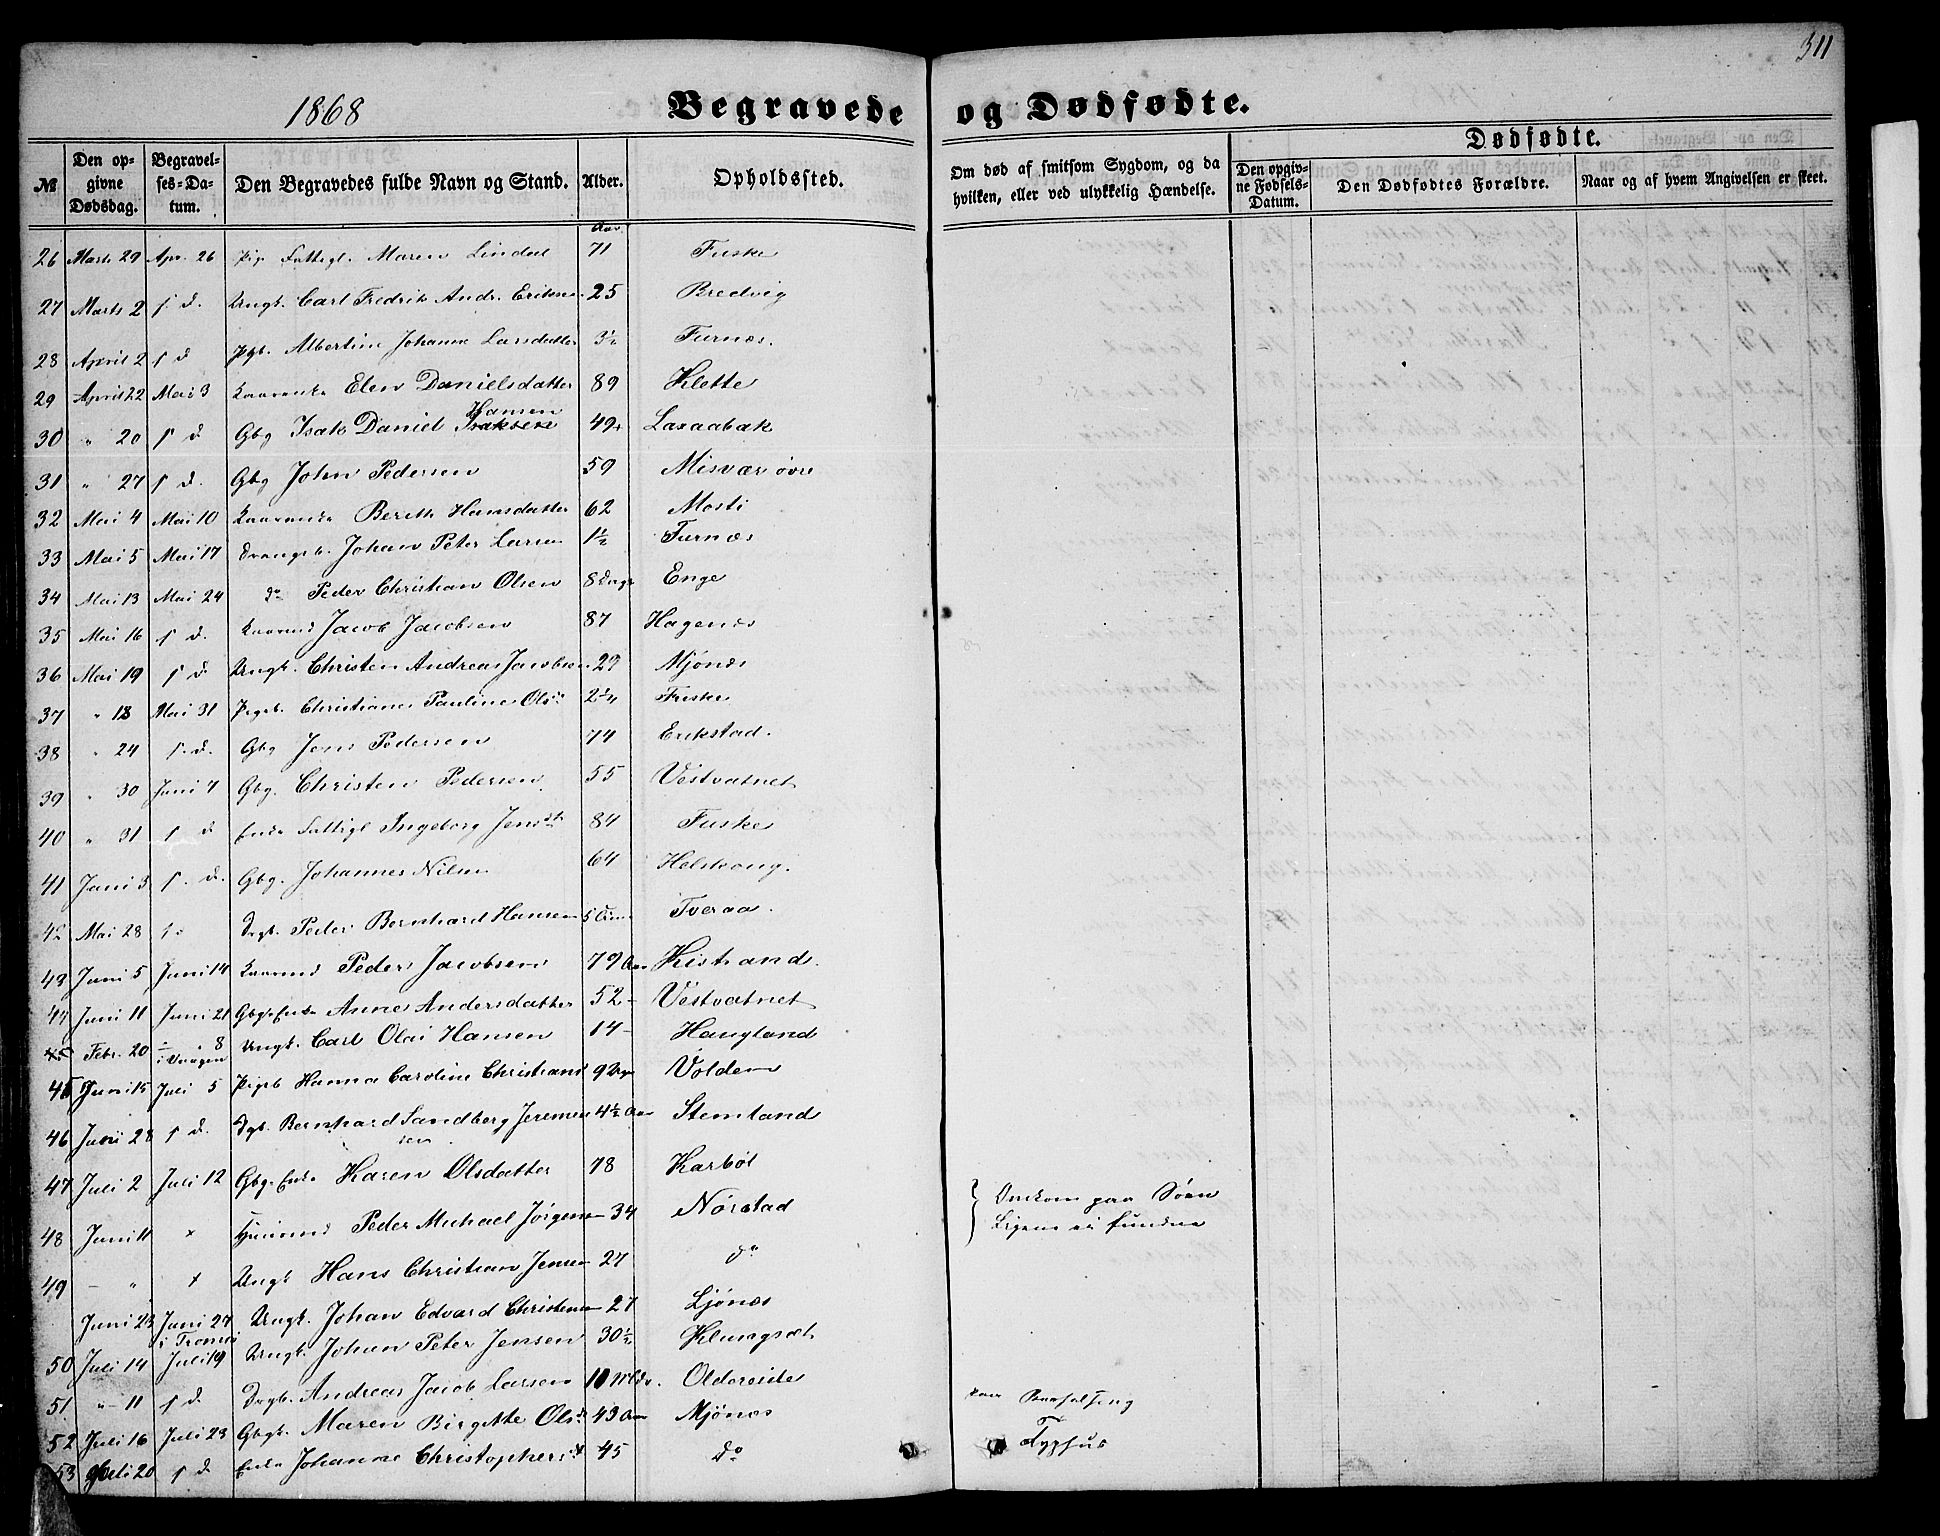 311
1868 Begravede og Dødfødte.
№ Den opgivne Dødsdag. Begravelses-Datum. Den Begravedes fulde Navn og Stand. Alder. Opholdssted. Om død af smitsom Sygdom, og da hvilken, eller ved ulykkelig Hændelse. Dødfødte. Den opgivne Fødsels-Datum. Den Dødfødtes Forældre. Naar og af hvem Angivelsen er skeet.
Aar
26 Marts 29 Apr. 26 Maren Lindal 71 Fuske
27 Marts 2 s d. Ungk. Carl Fredrik Andr. Eriksen 25 Bredvig
28 April 2 s d Pgb. Albertine Johanne Larsdatter 3½ Furnæs.
29 April 22 Mai 3 Kaarenke Elen Danielsdatter 89 Klette
30 " 20 s d Gbg Isak Daniel Isaksen Hansen 49 Laxaabak
31 " 27 s d. Gbg John Pedersen 59 Misvær øvre
32 Mai 4 Mai 10 Kaarenke Berith Hansdatter 62 Mosti
33 Mai 5 Mai 17 Drengeb. Johan Peter Larsen 1½ Furnæs
34 Mai 13 Mai 24 do Peder Christian Olsen 8 Dage Enge
35 Mai 16 s d. Kaarmd Jacob Jacobsen 87 Hagenæs
36 Mai 19 s d Ungk. Christen Andreas Jacobsen 29 Mjønes
37 " 18 Mai 31 Pigeb. Christiane Pauline Olsdr 2¼ Fuske
38 " 24 s. d. Gbg Jens Pedersen 74 Erikstad.
39 " 30 Juni 7 Gbg. Christen Pedersen 55 Vestvatnet
40 " 31 s d Enke Fattigl Ingeborg Jensdt 84 Fuske
41 Juni 3 s. d. Gbg. Johannes Nilsen 64 Helskong.
42 Mai 28 Drgb. Peder Bernhard Hansen 5 Tveraa.
43 Juni 5 Juni 14 Kaarmd Peder Jacobsen 79 Aar Kistrand.
44 Juni 11 Juni 21 Gbgs Enke Anne Andersdatter 52 - Vestvatnet
45 Febr. 20 8 i Vaagen Ungk. Carl Olai Hansen 14 - Haugland
45 Juni 15 Juli 5 Pigeb Hanna Caroline Christiansd 9 Dge Volden
46 Juni 28 s d. Dgb. Bernhard Sandberg Jeremen 4½ Aar Stemland
sen
47 Juli 2 Juli 12 Gbgs Enke Karen Olsdatter 78 Karbøl
48 Juni 11 × Huusmd Peder Michael Jørgensen 34 Nørstad } Omkom paa Søen
Ligene ei fundne
49 - " × Ungk Hans Christian Jensen 27 do
Juni 23 Juni 27 i Tromsø Ungk. Johan Edvard Christensen 27 Ljønes
50 Juli 14 Juli 19 Ungk. Johan Peter Jensen 30½ Klungset
51 " 11 s d Drgb. Andreas Jacob Larsen 10 Mdr. Oldereide
52 Juli 16 Juli 23 Gbgk. Maren Birgitte Olsd 43 Aar Mjønes Barselseng
53 Juli 20 s d Enke Johanne Christophersdt 45 do Typhus